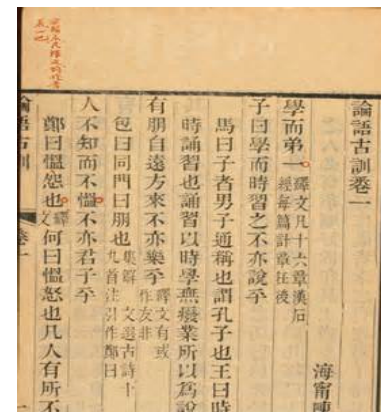 論語古訓卷一
海寧陳
學而第一 釋文凡十六章漢石
經每篇計章在後
子曰學而時習之不亦說乎
馬曰子者男子通稱也謂孔子也王曰時
時誦習也誦習以時學無癈業所以為說
有朋自遠方來不亦樂乎 釋文有或
作友非
包曰同門曰朋也 集解 文選古詩十
九首注引作鄭曰
人不知而不慍不亦君子乎
鄭曰慍怨也 釋
文 何曰慍怒也凡人有所不
論語古訓 卷一